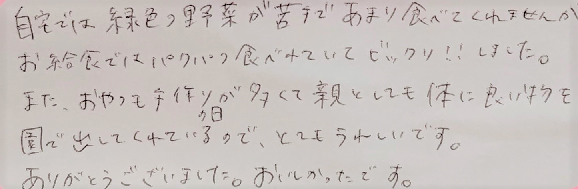 自宅では緑色の野菜が苦手であまり食べてくれませんが
お給食ではパクパク食べれていてビックリ!!しました。
また、おやつも手作りが多くて親としても体に良い物を
園で出してくれているので、とてもうれしいです。
ありがとうございました。おいしかったです。